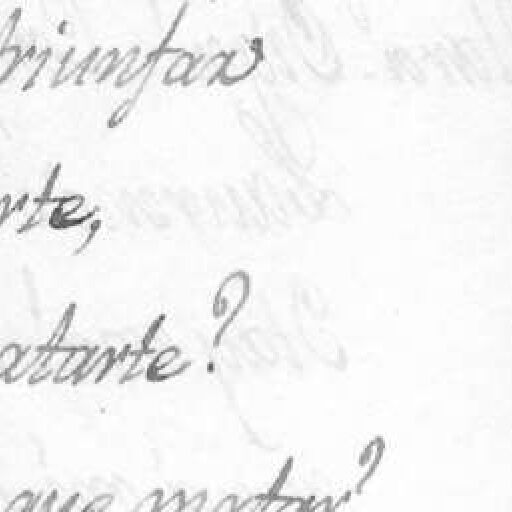 triunfar
rte,
atarte?
que matar?